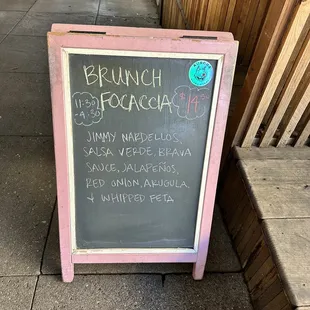 BRUNCH
FOCACCIA
11:30
-4:30
$14
JIMMY NARDELLOS,
SALSA VERDE, BRAVA
SAUCE, JALAPEÑOS,
RED ONION, ARUGULA,
& WHIPPED FETA